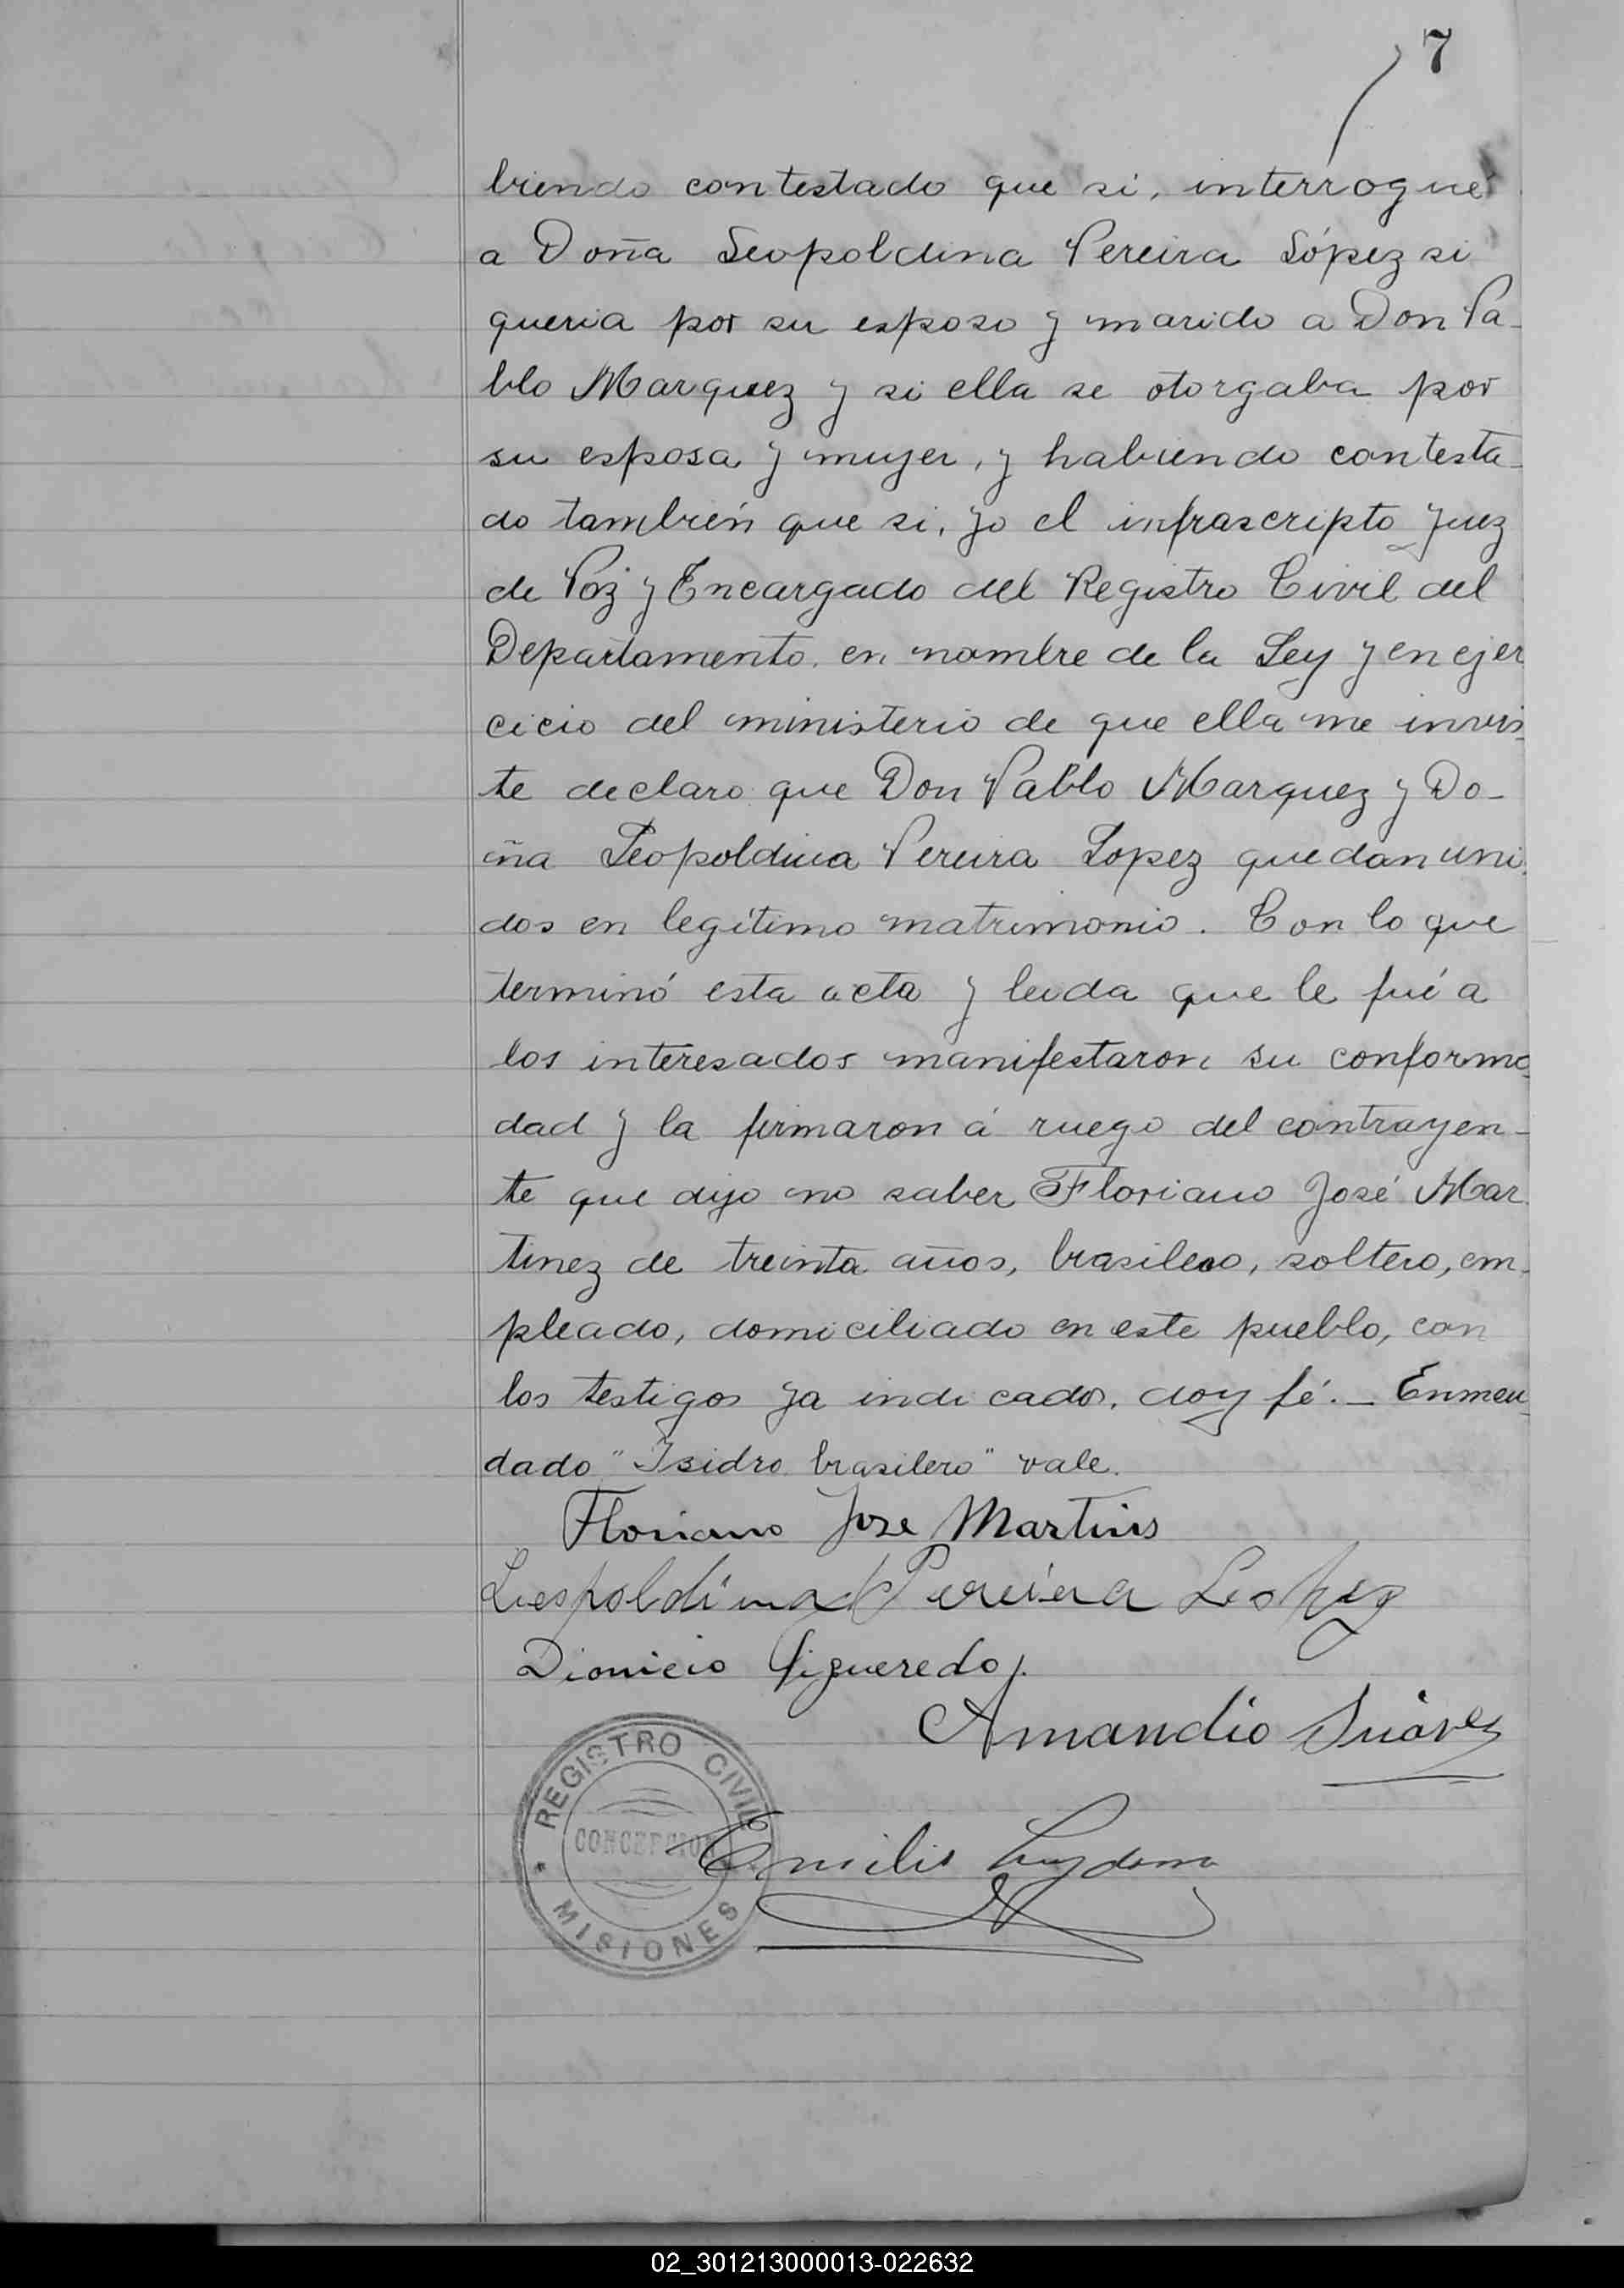 7
biendo contestado que si, interrogué
a Doña Leopoldina Pereira López si
queria por su esposo y marido a Don Pa-
blo Marquez y si ella se otorgaba por
su esposa y mujer, y habiendo contesta-
do también que si, yo el infrascripto Juez
de Paz y Encargado del Registro Civil del
Departamento, en nombre de la Ley y en ejer
cicio del ministerio de que ella me invis-
te declaro que Don Pablo Marquez y Do-
ña Leopoldina Pereira Lopez quedan uni-
dos en legítimo matrimonio. Con lo que
terminó esta acta y leida que le fué a
los interesados manifestaron su conformi-
dad y la firmaron á ruego del contrayen-
te que dijo no saber Floriano José Mar-
tinez de treinta años, brasilero, soltero, em-
pleado, domiciliado en este pueblo, con
los testigos ya indicados, doy fé. — Enmen-
dado "Isidro brasilero" vale.
Floriano Jose Martins
Leopoldina Pereira Lopez
Dionicio Figueredo
Amandio Suárez
REGISTRO CIVIL
CONCEPCION
MISIONES
Emilio
02_301213000013-022632